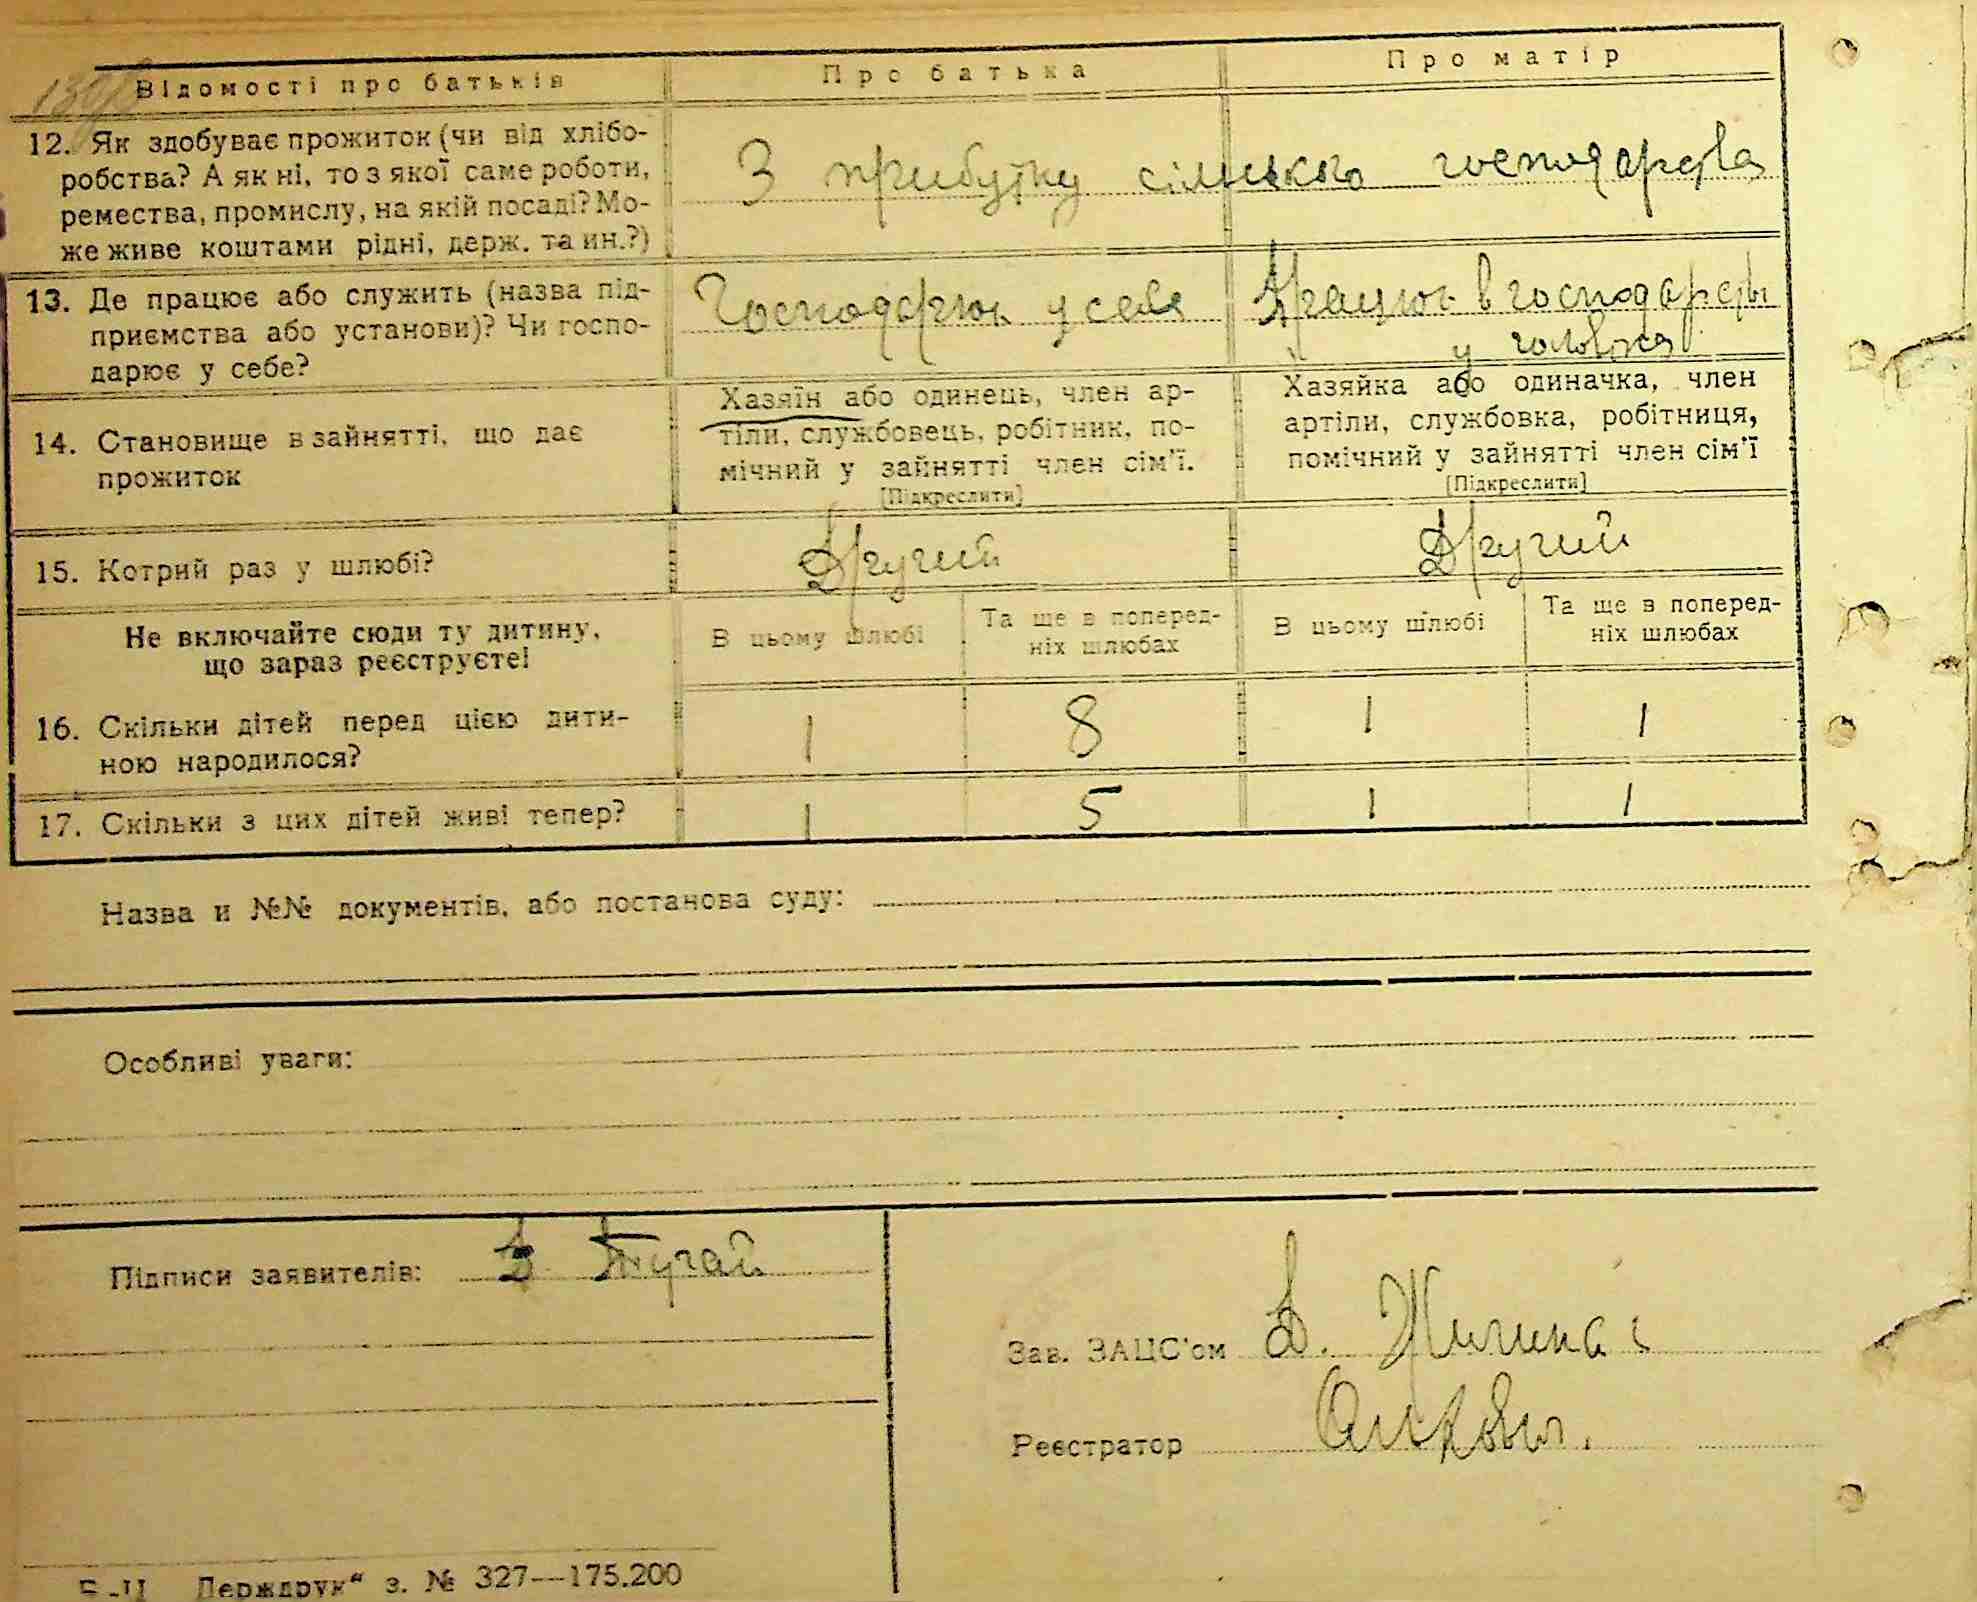 Відомості про батьків
Про батька
Про матір
12. Як здобуває прожиток (чи від хлібо-
робства? А як ні, то з якої саме роботи,
ремества, промислу, на якій посаді? Мо-
же живе коштами рідні, держ. та ин.?)
З прибутку сільського господарства
13. Де працює або служить (назва під-
приємства або установи)? Чи госпо-
дарює у себе?
Господарює у себе
Працює в господарстві
у чоловіка
14. Становище в зайнятті, що дає
прожиток
Хазяїн або одинець, член ар-
тіли, службовець, робітник, по-
мічний у зайнятті член сім'ї.
[Підкреслити]
Хазяйка або одиначка, член
артіли, службовка, робітниця,
помічний у зайнятті член сім'ї
[Підкреслити]
15. Котрий раз у шлюбі?
Другий
Другий
Не включайте сюди ту дитину,
що зараз реєструєте!
В цьому шлюбі
Та ще в поперед-
ніх шлюбах
В цьому шлюбі
Та ще в поперед-
ніх шлюбах
16. Скільки дітей перед цією дити-
ною народилося?
1 8 1 1
17. Скільки з цих дітей живі тепер?
1 5 1 1
Назва и №№ документів, або постанова суду:
Особливі уваги:
Підписи заявителів: Тугай
Зав. ЗАЦС'ом
Реєстратор
„Держдрук“ з. № 327—175.200